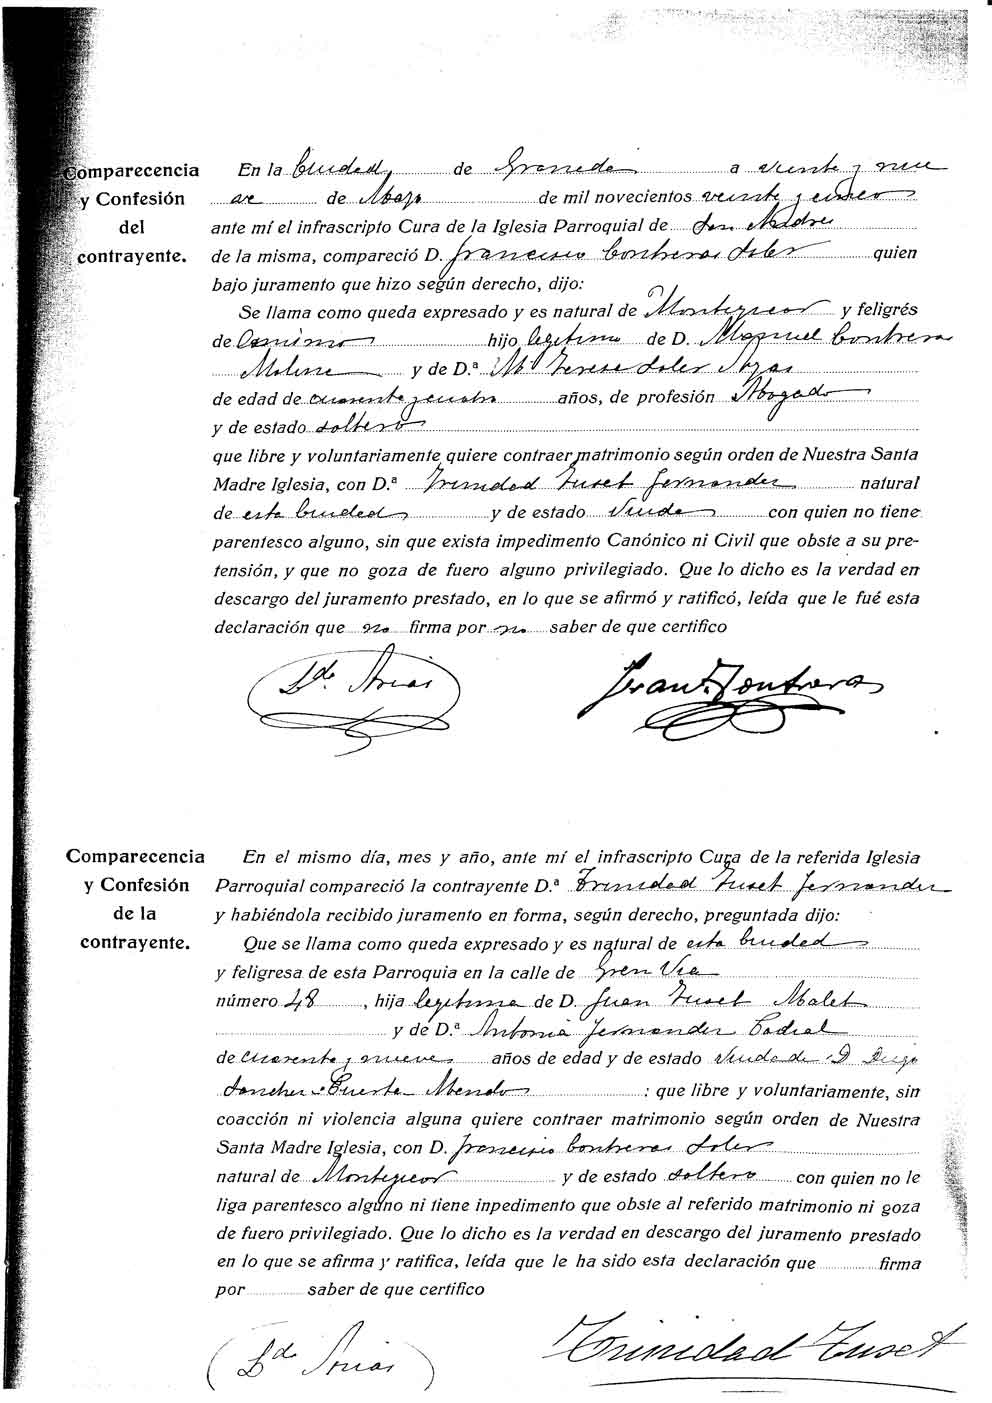 Comparecencia
y Confesión
del
contrayente.
En la Ciudad de Granada a veinte y nue
ve de Mayo de mil novecientos veinte y cinco
ante mí el infrascripto Cura de la Iglesia Parroquial de San Andres
de la misma, compareció D. Francisco Contreras Soler quien
bajo juramento que hizo según derecho, dijo:
Se llama como queda expresado y es natural de Montejicar y feligrés
de hijo legitimo de D. Manuel Contreras
Molina y de D.ª Mª Teresa Soler
de edad de cuarenta y cuatro años, de profesión Abogado
y de estado soltero
que libre y voluntariamente quiere contraer matrimonio según orden de Nuestra Santa
Madre Iglesia, con D.ª Trinidad Tuset Fernander natural
de esta Ciudad y de estado Viuda con quien no tiene
parentesco alguno, sin que exista impedimento Canónico ni Civil que obste a su pre-
tensión, y que no goza de fuero alguno privilegiado. Que lo dicho es la verdad en
descargo del juramento prestado, en lo que se afirmó y ratificó, leída que le fué esta
declaración que no firma por no saber de que certifico
Ldo. Arias
Fran. Contreras
Comparecencia
y Confesión
de la
contrayente.
En el mismo día, mes y año, ante mí el infrascripto Cura de la referida Iglesia
Parroquial compareció la contrayente D.ª Trinidad Tuset Fernander
y habiéndola recibido juramento en forma, según derecho, preguntada dijo:
Que se llama como queda expresado y es natural de esta Ciudad
y feligresa de esta Parroquia en la calle de Gran Via
número 48, hija legitima de D. Juan Tuset Malet
y de D.ª Antonia Fernander
de cuarenta y nueve años de edad y de estado Viuda de D. Diego
Sancher Puerta Mendo : que libre y voluntariamente, sin
coacción ni violencia alguna quiere contraer matrimonio según orden de Nuestra
Santa Madre Iglesia, con D. Francisco Contreras Soler
natural de Montejicar y de estado soltero con quien no le
liga parentesco alguno ni tiene inpedimento que obste al referido matrimonio ni goza
de fuero privilegiado. Que lo dicho es la verdad en descargo del juramento prestado
en lo que se afirma y ratifica, leída que le ha sido esta declaración que firma
por saber de que certifico
Ldo Arias
Trinidad Tuset